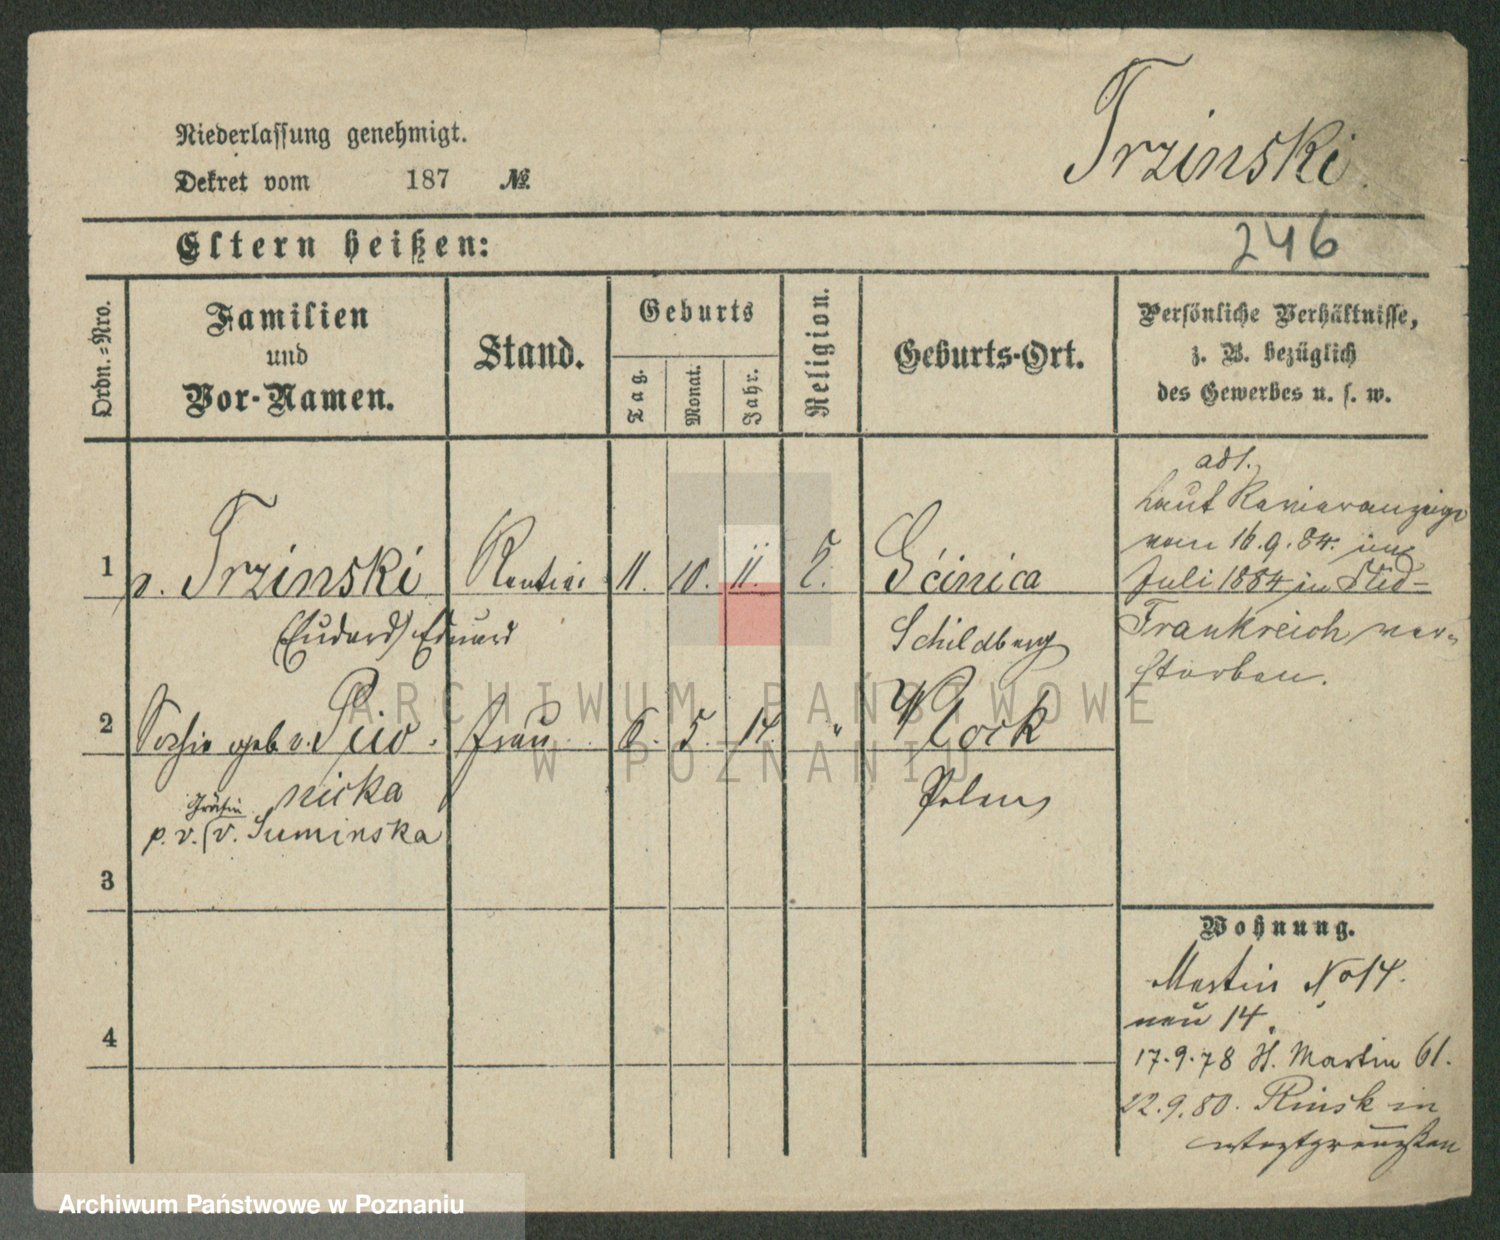 Trzinski.
Niederlassung genehmigt.
Dekret vom 187 №
Eltern heißen:
246
Ordn.=Nro.
Familien
und
Vor-Namen.
Stand.
Geburts
Tag.
Monat.
Jahr.
Religion.
Geburts-Ort.
Persönliche Verhältnisse,
z. B. bezüglich
des Gewerbes u. s. w.
1
v. Trzinski
Rentier
11. 10. 11.
Eduard
Schildberg
adl.
laut Revieranzeige
vom 16.9.84. im
Juli 1884 in Süd-
Frankreich ver-
storben.
2
geb. v.
Frau
6. 5. 14. "
Klock
nicka
Polen
Gräfin
p. v. (v. Suminska
3
4
Wohnung.
Martin No 14.
neu 14.
17.9.78 St. Martin 61.
22.9.80. Rinsk in
Westpreußen
ARCHIWUM PAŃSTWOWE
W POZNANIU
Archiwum Państwowe w Poznaniu